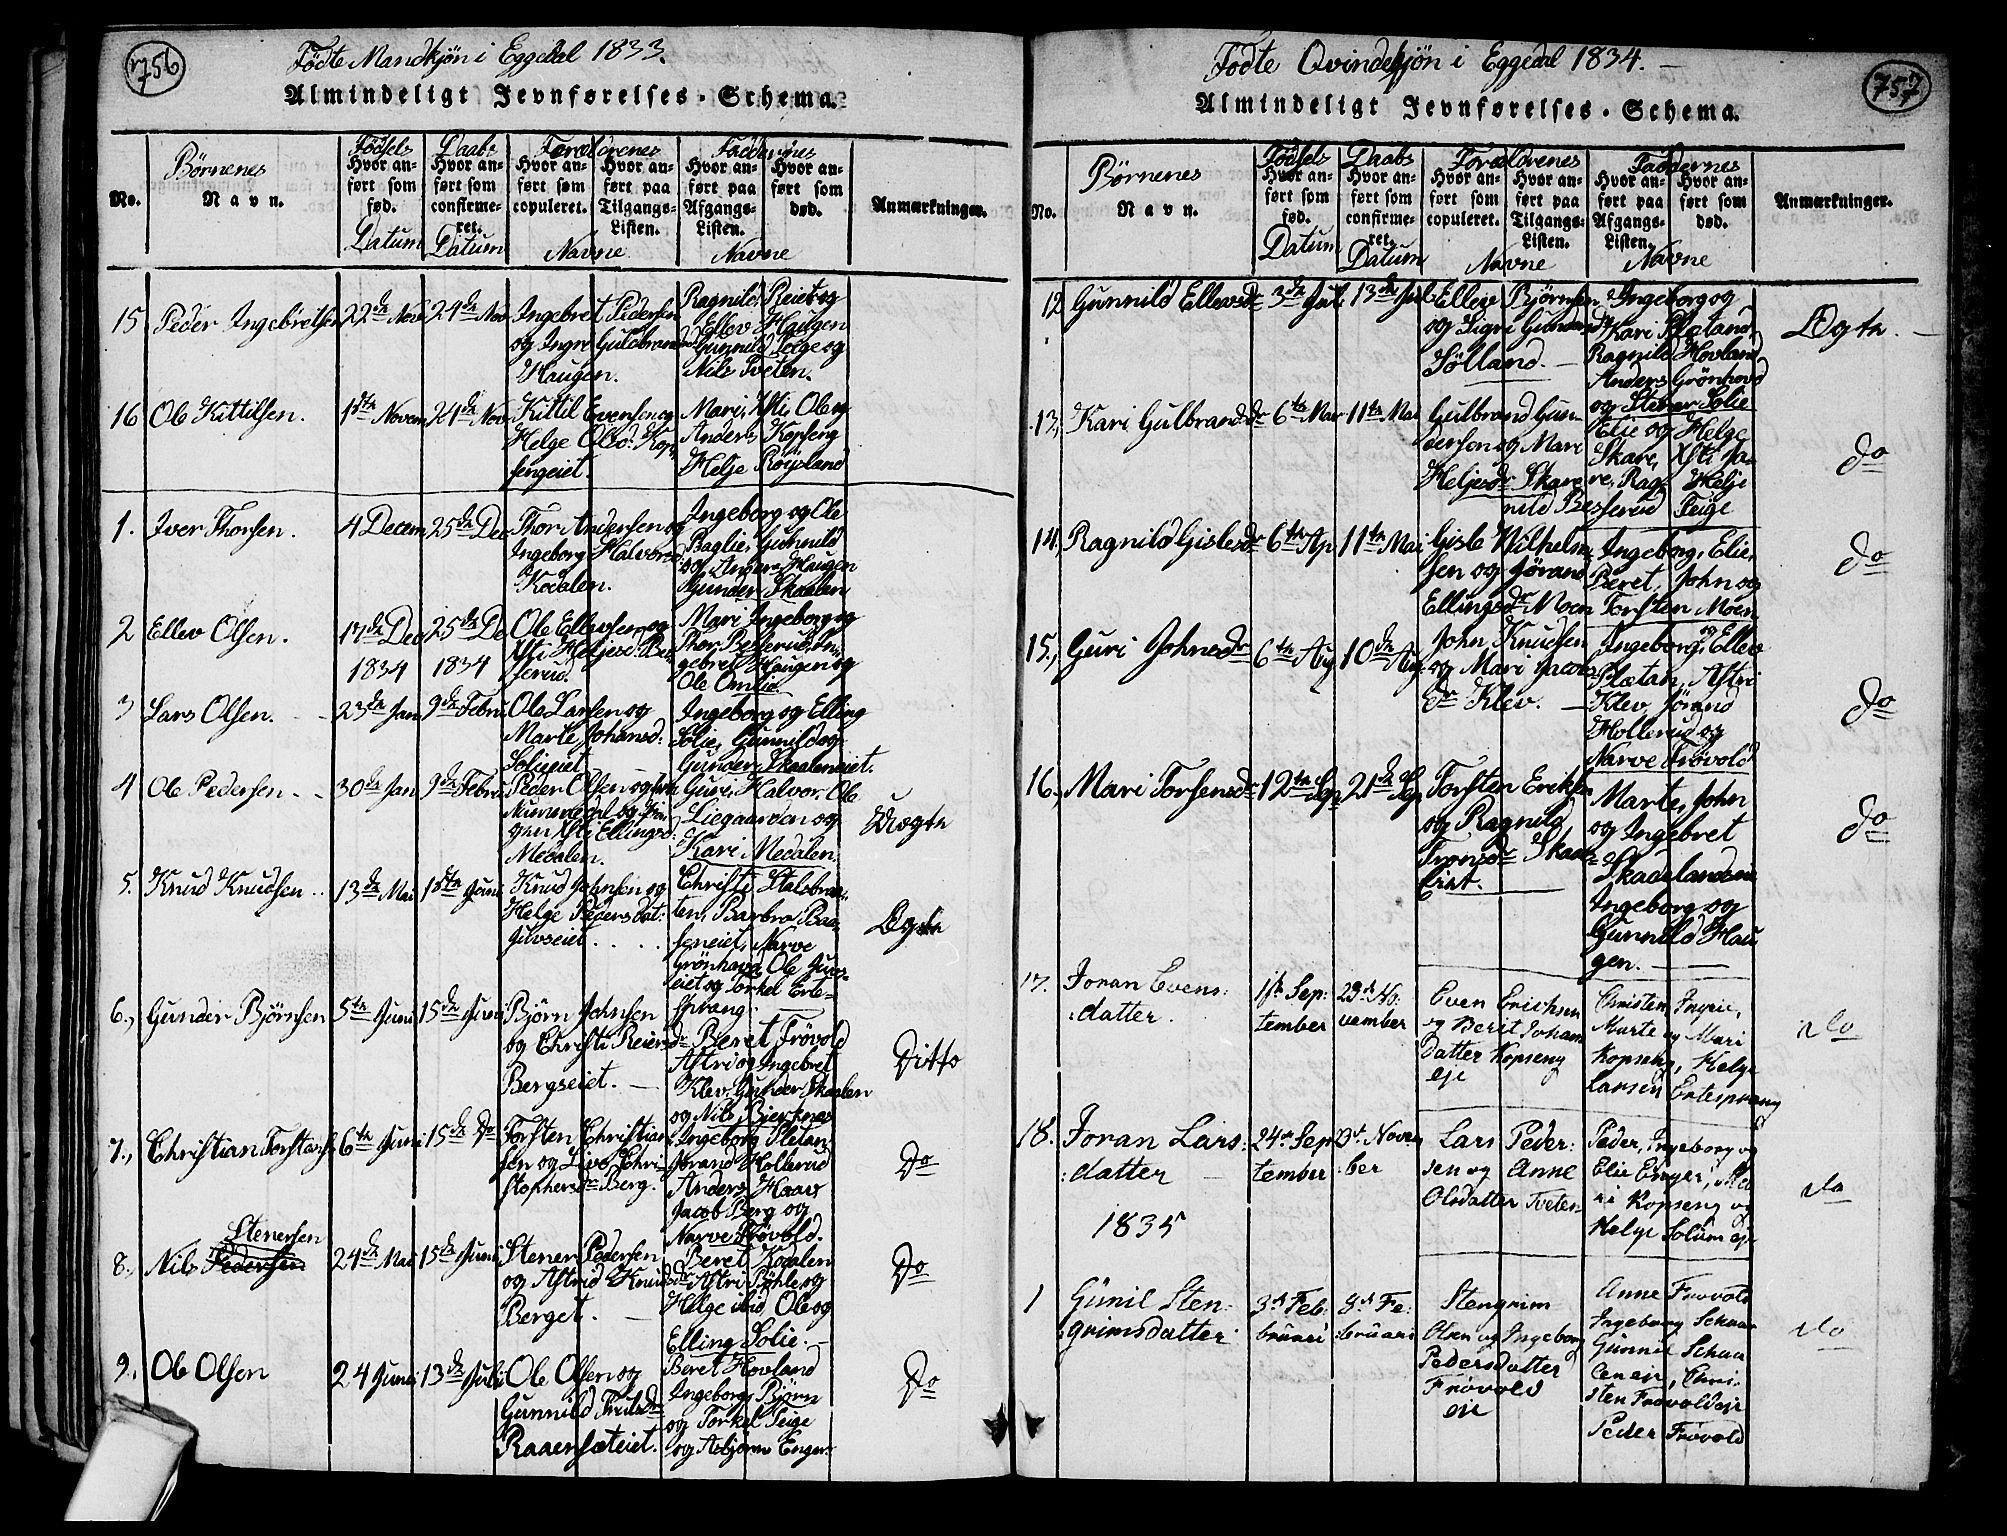 756
Fødte Mandkjøn i Eggedal 1833.
Almindeligt Jevnførelses-Schema.
No.
Børnenes
Navn.
Fødsels
Hvor an-
ført som
fød.
Datum
Daabs
Hvor an-
ført som
confirme-
ret.
Datum
Forældrenes
Hvor an-
ført som
copuleret.
Hvor an-
ført paa
Tilgangs-
Listen.
Navne
Faddernes
Hvor an-
ført paa
Afgangs-
Listen.
Hvor an-
ført som
død.
Navne
Anmærkninger.
15 Peder Ingebretsen 22de Nov 24de Nov
Ingebret Pedersen
og Ingri Guldbrandsd
Haugen.
Ragnild, Reier og
Ellev Haugen
Gunnild Lolge og
Nils Tveten.
16 Ole Kittilsen. 1ste Novem 24de Nov
Kittil Evensen og
Helge Olsd. Kop-
sengeiet.
Mari, Xsti, Ole og
Anders Kopseng
Helje Røysland
1. Iver Thorsen. 4 Decem 25de Dec
Thor Andersen og
Ingeborg Halvorsd.
Kodalen.
Ingeborg og Ole
Baglie, Gunnild
og Anders Haugen
Gunder Skaalen
2 Ellev Olsen. 17de Dec 25de De
Ole Ellevsen og
Xsti Heljesd. Bes-
serud.
Mari Ingeborg og
Thor Besserud, In-
gebret Haugen og
Ole Omlid.
1834 1834
3 Lars Olsen. 23de Jan 9de Febru
Ole Larsen og
Marte Johansd:
Solieeiet
Ingeborg og Elling
Solie, Gunnild og
Gunder Skaaleneiet.
4 Ole Pedersen 30de Jan 9de Febru
Peder Olsen og fra
Nummedal og Pi-
gen Xsti Ellingsd:
Medalen.
Guri, Halvor, Ole
Liegaarden og
Kari Medalen.
Uægte
5. Knud Knudsen 13de Mai 1ste Juni
Knud Johnsen og
Helge Pedersdat:
Juvseiet
Christi Stalsbraa-
ten, Barbro Baa-
seneiet, Narve
Grønhovd Ole Juvs-
eiet og Torkel Erte-
sprang.
Ægte
6., Gunder Bjørnsen 5te Juni 15de Juni
Bjørn Johnsen
og Christi Reiersdr
Bergseiet.
Beret Frøvold
Astri og Ingebret
Klev, Gunder Skaalen
og Nils Bjerknes
Ditto
7., Christian Torstens 6te Juni 15de Do
Torsten Christian-
sen og Live Chri-
stophersdr Berg.
Ingeborg Pletan
Jørand Hollerud
Anders Haav
Jacob Berg og
Narve Frøvold.
Do
8., Nils Pedersen
Stenersen
24de Mai 15de Juni
Stener Pedersen
og Astrid Knudsdr
Berget.
Beret Kodalen
Astri Bøhle og
Helge ibid, Ole og
Elling Solie.
Do
9., Ole Olsen 24 Juni 13de Juli
Ole Olsen og
Gunnild Truls dr
Raaensæteiet.
Beret Hovland
Ingeborg Bjørn
og Torkel Teige
og Asbjørn Enger:
Do
757
Fødte Qvindekjøn i Eggedal 1834.
Almindeligt Jevnførelses-Schema.
No.
Børnenes
Navn.
Fødsels
Hvor an-
ført som
fød.
Datum
Daabs
Hvor an-
ført som
confirme-
ret.
Datum
Forældrenes
Hvor an-
ført som
copuleret.
Hvor an-
ført paa
Tilgangs-
Listen.
Navne
Faddernes
Hvor an-
ført paa
Afgangs-
Listen.
Hvor an-
ført som
død.
Navne
Anmærkninger.
12 Gunnild Ellevsdr 3de Juli 13de Jul
Ellev Bjørnsen
og Sigri Gundersdr
Sølland.
Ingeborg og
Kari Pletand,
Ragnild Hovland
Anders Grønhovd
og Stener Solie
Ægte
13, Kari Gulbrandsdr 6te Mar 11te Mai
Gulbrand Gun-
dersen og Mari
Heljesdr Skare
Elie og Helge
Skare, Xsti Ja-
re, Rag- Helje
nild Besserud Teige
do
14, Ragnild Gislesdr 6te Ap 11te Mai
Gisle Wilhelm-
sen og Jørand
Ellingsdr Moen
Ingeborg, Elie,
Beret, John og
Torsten Moen
do
15., Guri Johnsdr 6te Aug 10de Aug
John Knudsen
og Mari Jacobs
dr Klev.
Ingeborg og Ellev
Pletan, Astri
Klev, Jørand
Hollerud og
Narve Frøvold
do
16., Mari Torstensdr 12te Sep 21de Sep
Torsten Eriksen
og Ragnild
Tronsdr Skade-
eiet.
Marte, John
og Ingebret
Skadelandeie
Ingeborg og
Gunnild Hau
gen.
do
17. Joran Evens:
datter.
1ste Sep:
tember
23de No:
vember
Even Erichsen
og Berit Johans
datter Kopseng
eje
Christen, Ingrie,
Marte og Mari
Kopseng, Helge
Larsen Ertesprang
do
18. Joran Lars:
datter
24de Sep
tember
3de Novem
:ber
Lars Peder:
sen og Anne
Olsdatter Tveten
Peder, Ingeborg og
Elie Enger, Ma
ri Kopseng og
Helge Solum eje
do
1835
1 Günil Sten:
grimsdatter
3de Feb:
bruari
8de Fe:
bruari
Stengrim
Olsen og Ingeborg
Pedersdatter
Frøvold
eje
Anne Frøvold
Ingeborg Schaa
Günnil Schaa
len eje, Chri-
sten Frøvoldeje
Peder Frøvold
do